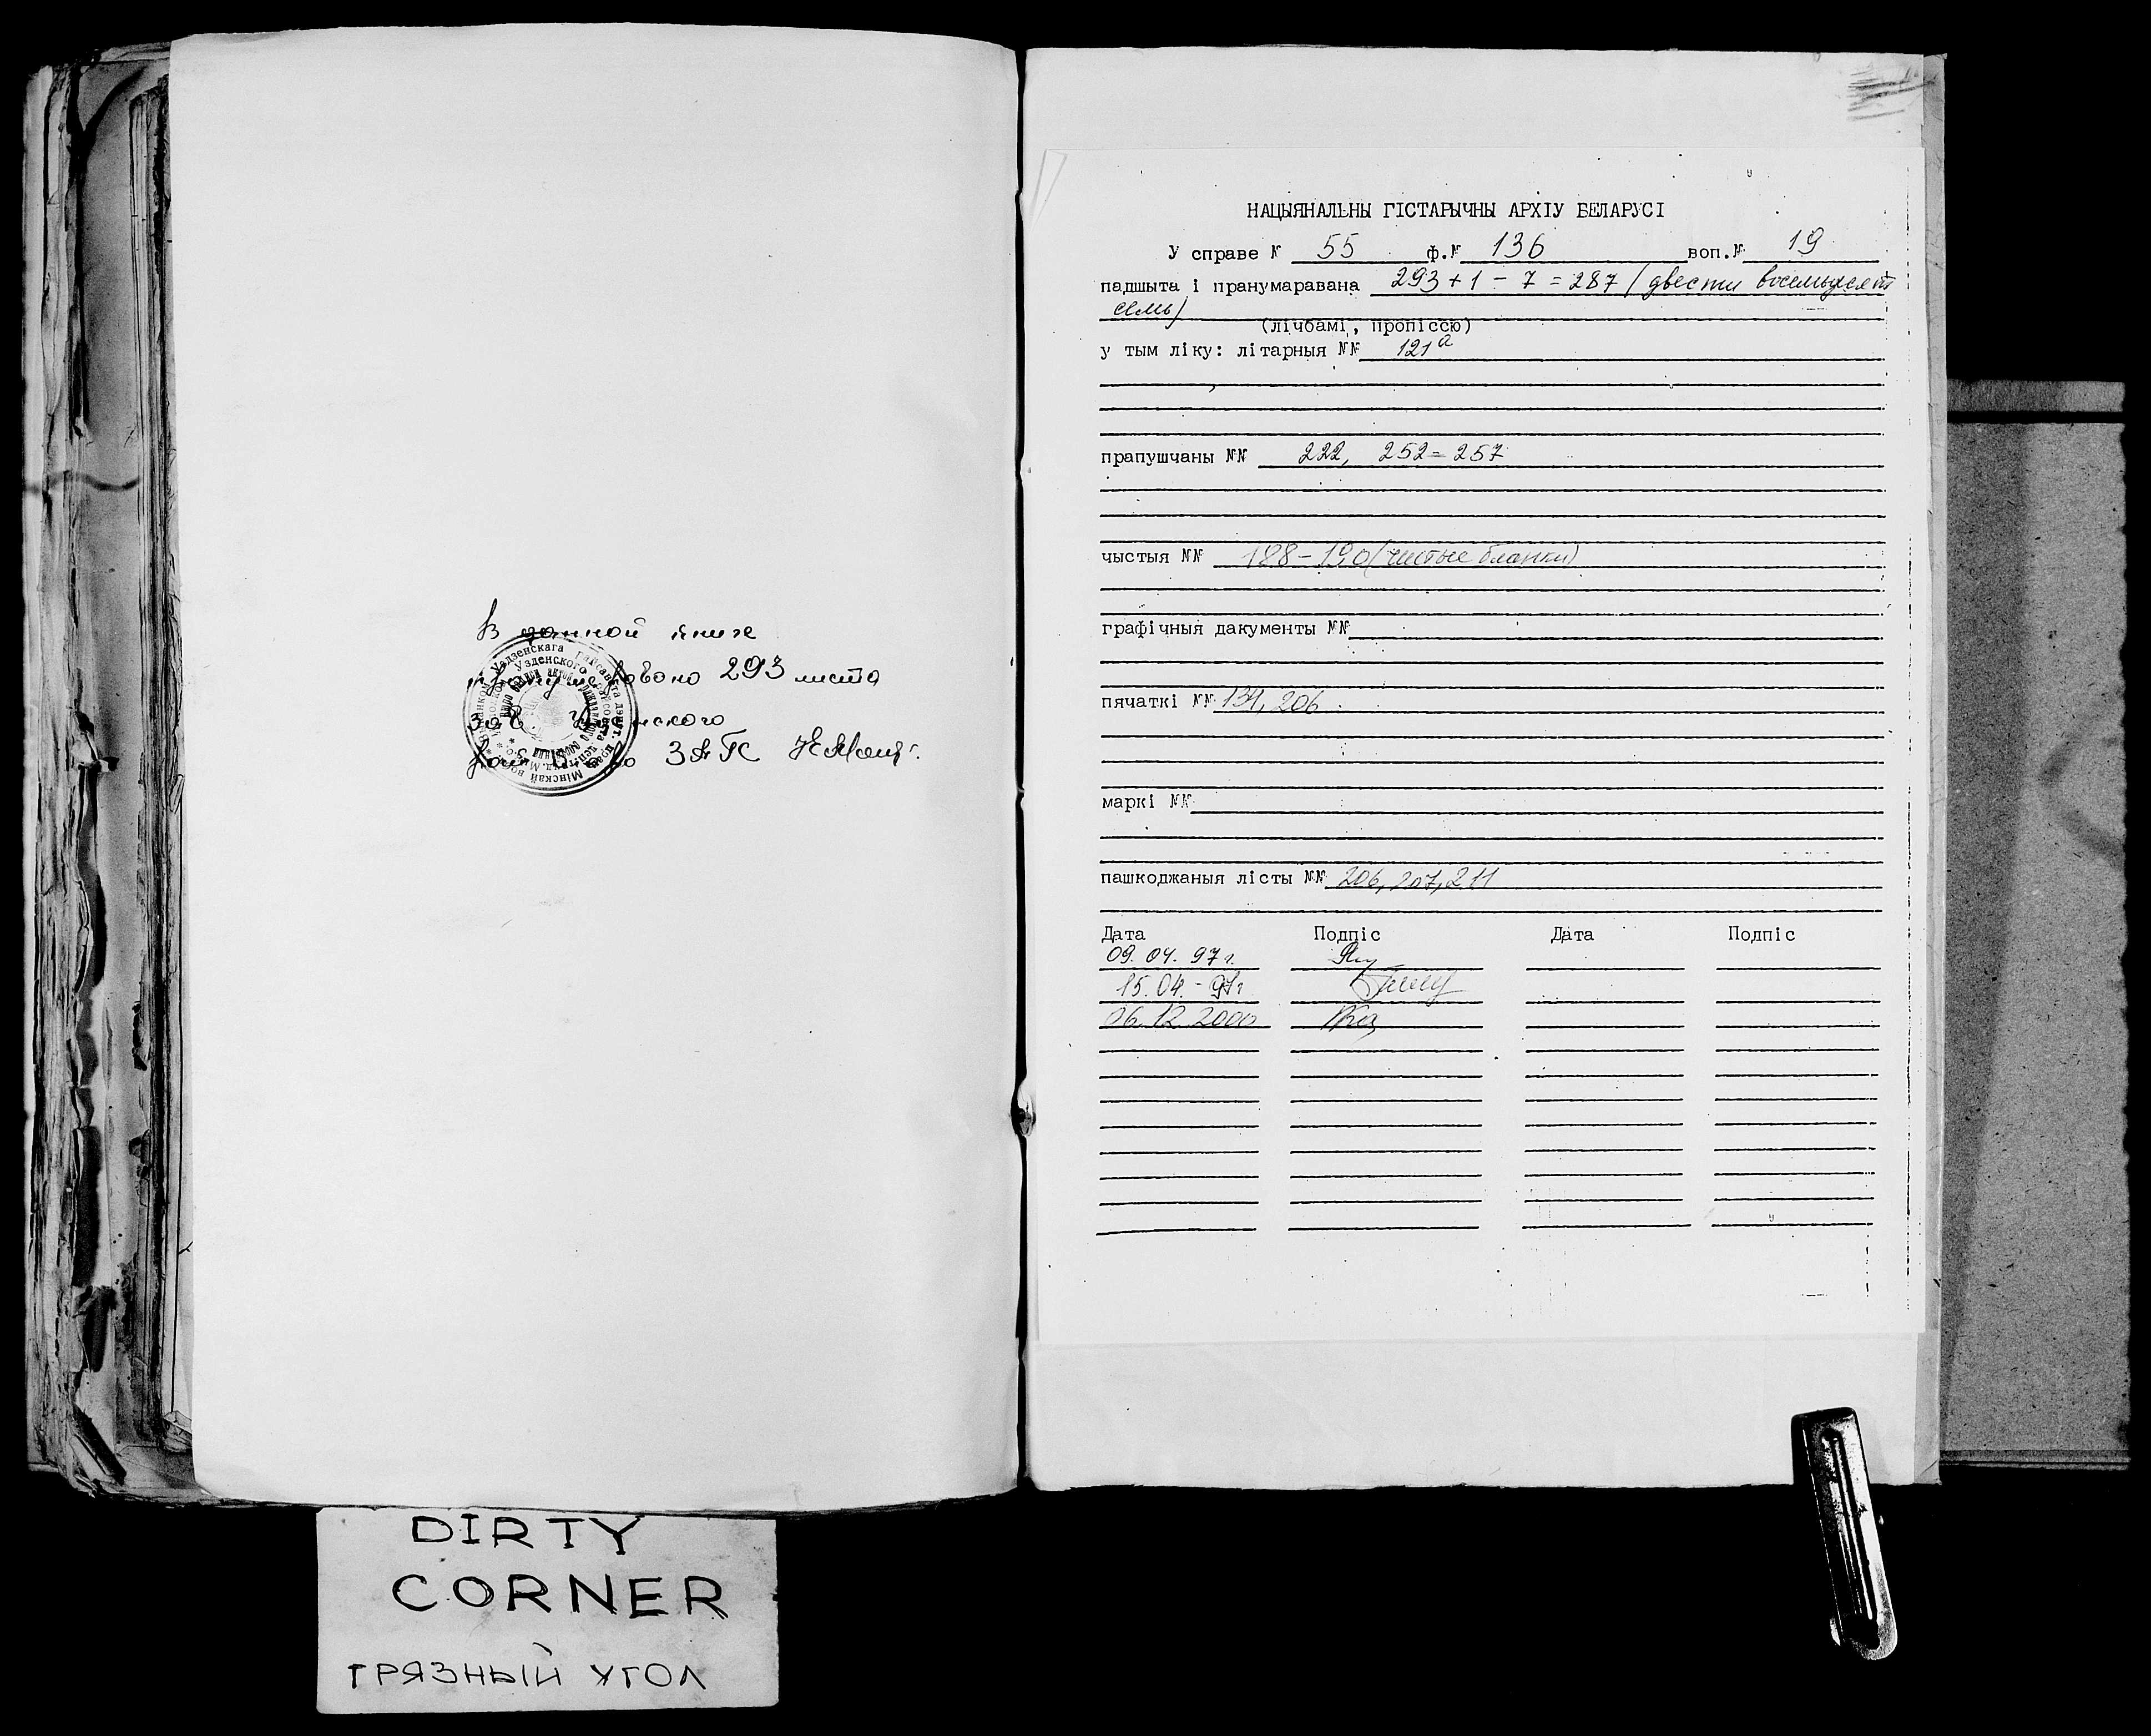 В данной книге
пронумеровано 293 листа
Зав. Узденского
бюро ЗАГС
НАЦЫЯНАЛЬНЫ ГІСТАРЫЧНЫ АРХІУ БЕЛАРУСІ
У справе № 55 ф.№ 136 воп.№ 19
падшыта і пранумаравана 293 + 1 - 7 = 287 (двести восемьдесят
семь)
(лічбамі, пропіссю)
у тым ліку: літарныя №№ 121а
прапушчаны №№ 222, 252-257
чыстыя №№ 188-190 (чистые бланки)
графічныя дакументы №№
пячаткі №№ 134, 206
маркі №№
пашкоджаныя лісты №№ 206, 207, 211
Дата Подпіс Дата Подпіс
09. 04. 97 г.
15. 04. - 97 г
06. 12. 2000
DIRTY
CORNER
ГРЯЗНЫЙ УГОЛ